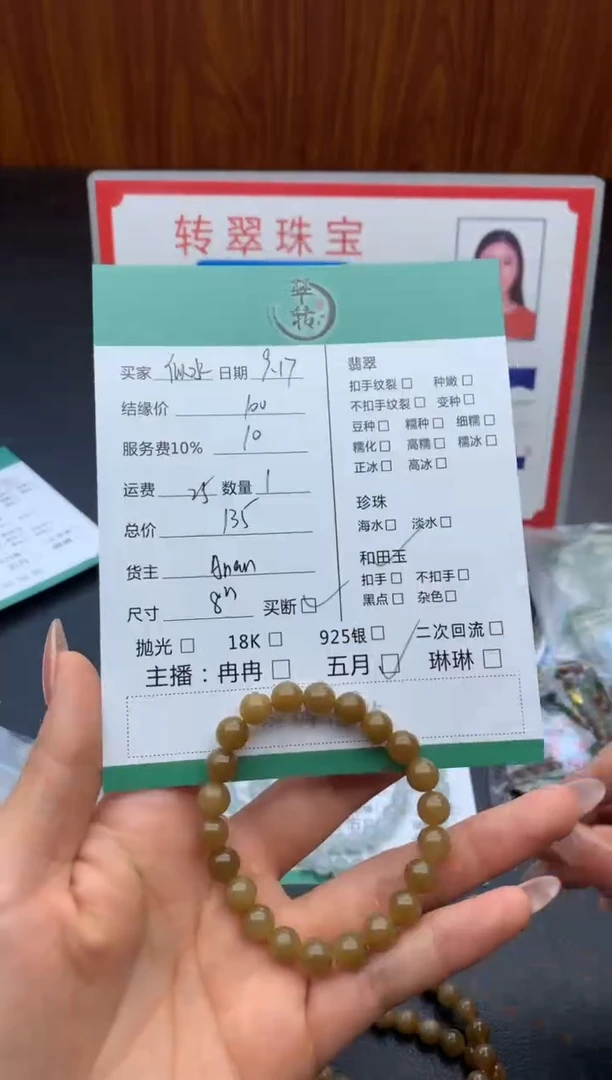 转翠珠宝
翠
转
买家 似水 日期 9.17
结缘价 100
服务费10% 10
运费 25 数量 1
总价 135
货主 Anan
尺寸 8m 买断☑
翡翠
扣手纹裂☐ 种嫩☐
不扣手纹裂☐ 变种☐
豆种☐ 糯种☐ 细糯☐
糯化☐ 高糯☐ 糯冰☐
正冰☐ 高冰☐
珍珠
海水☐ 淡水☐
和田玉
扣手☐ 不扣手☐
黑点☐ 杂色☐
抛光☐ 18K☐ 925银☐ 二次回流☐
主播：冉冉☐ 五月☑ 琳琳☐